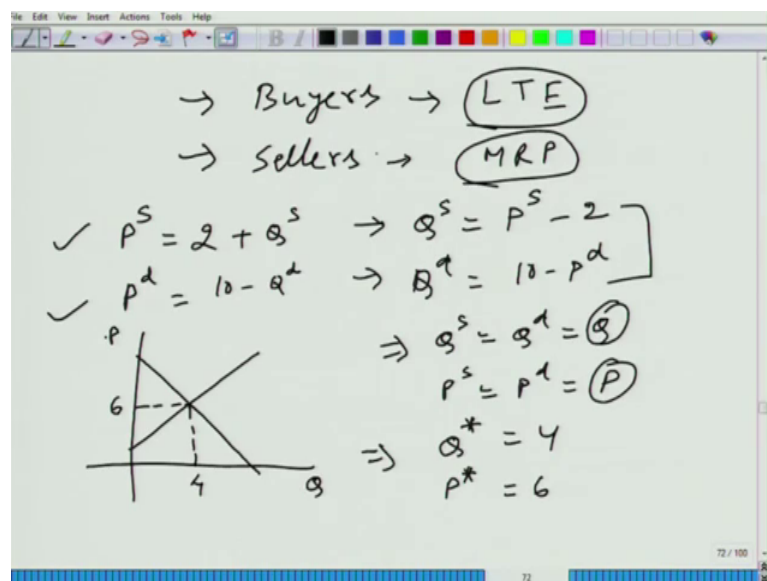 File Edit View Insert Actions Tools Help
→ Buyers → LTE
→ Sellers → MRP
✓ P^s = 2 + Q^s → Q^s = P^s - 2
✓ P^d = 10 - Q^d → Q^d = 10 - P^d
⇒ Q^s = Q^d = Q
P^s = P^d = P
⇒ Q* = 4
P* = 6
P
6
4
Q
72 / 100
72